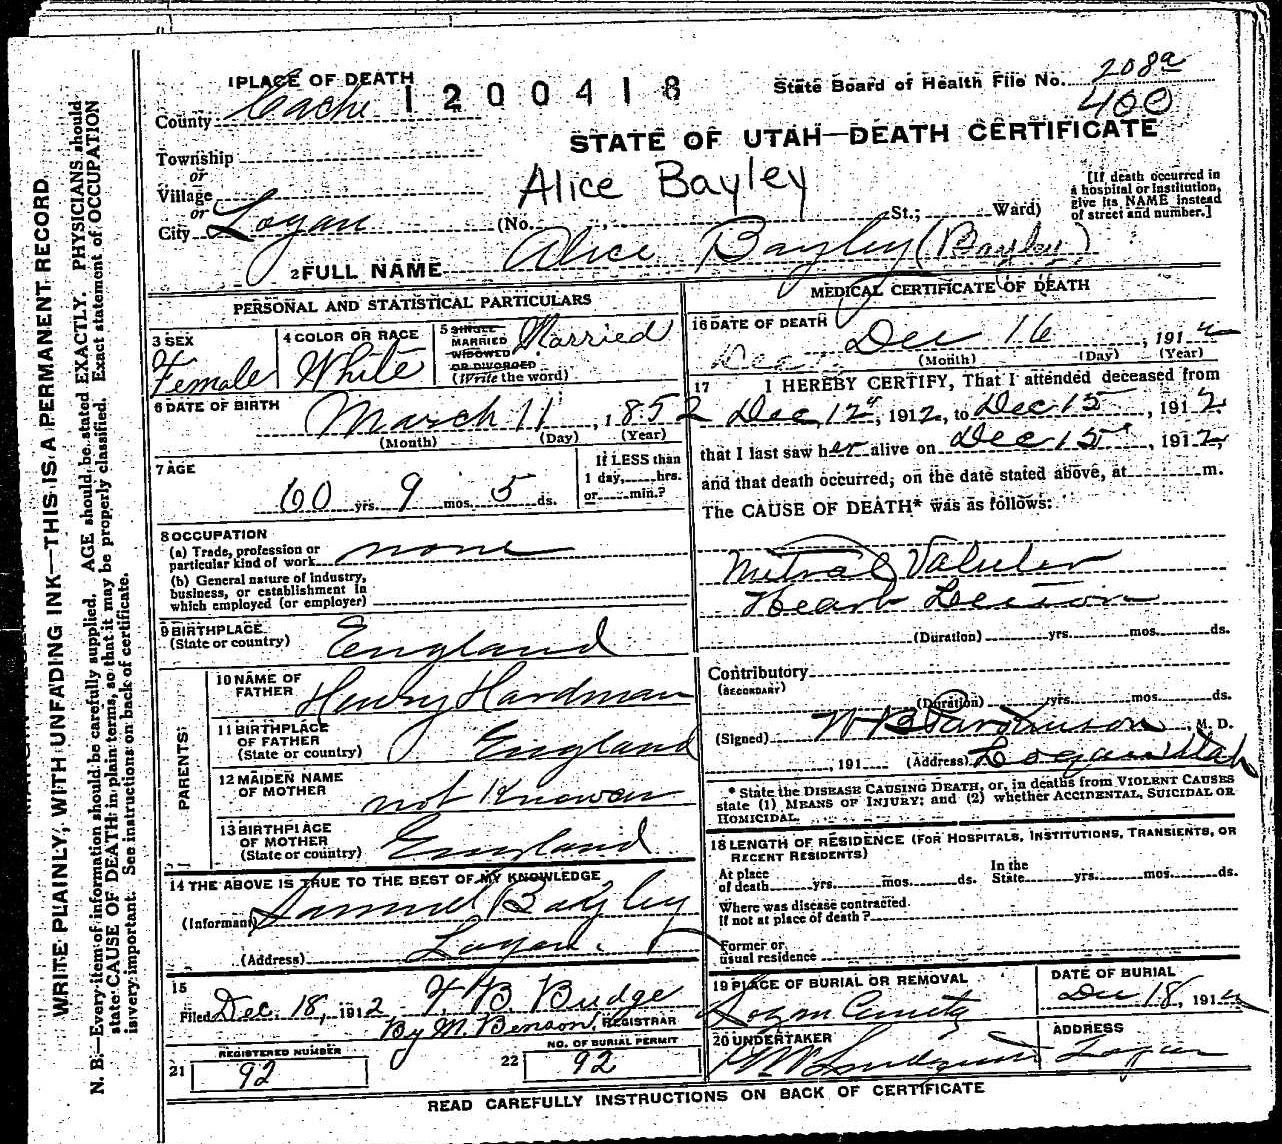 1 PLACE OF DEATH
County Cache
1200418
State Board of Health File No. 208a
400
STATE OF UTAH—DEATH CERTIFICATE
Township
or
Village
or
City Logan
Alice Bayley
(No. , St.; Ward)
[If death occurred in
a hospital or institution,
give its NAME instead
of street and number.]
2 FULL NAME Alice Bayley (Bayley)
PERSONAL AND STATISTICAL PARTICULARS
3 SEX
Female
4 COLOR OR RACE
White
5 SINGLE
MARRIED
WIDOWED
OR DIVORCED
(Write the word)
Married
6 DATE OF BIRTH
March 11, 1852
(Month) (Day) (Year)
7 AGE
60 yrs. 9 mos. 5 ds.
If LESS than
1 day, hrs.
or min.?
8 OCCUPATION
(a) Trade, profession or
particular kind of work none
(b) General nature of industry,
business, or establishment in
which employed (or employer)
9 BIRTHPLACE
(State or country) England
PARENTS
10 NAME OF
FATHER Henry Hardman
11 BIRTHPLACE
OF FATHER
(State or country) England
12 MAIDEN NAME
OF MOTHER not Known
13 BIRTHPLACE
OF MOTHER
(State or country) England
14 THE ABOVE IS TRUE TO THE BEST OF MY KNOWLEDGE
(Informant) Samuel Bayley
(Address) Logan
15
Filed Dec. 18, 1912 F. B. Budge
By M. Benson, REGISTRAR
21 REGISTERED NUMBER
92
22 NO. OF BURIAL PERMIT
92
MEDICAL CERTIFICATE OF DEATH
16 DATE OF DEATH
Dec 16, 1912
(Month) (Day) (Year)
17 I HEREBY CERTIFY, That I attended deceased from
Dec 12", 1912, to Dec 15, 1912
that I last saw her alive on Dec 15", 1912,
and that death occurred, on the date stated above, at m.
The CAUSE OF DEATH* was as follows:
Mitral Valvular
Heart Lesion
(Duration) yrs. mos. ds.
Contributory
(SECONDARY)
(Duration) yrs. mos. ds.
(Signed) W B Parkinson M. D.
, 191 (Address) Logan Utah
* State the DISEASE CAUSING DEATH, or, in deaths from VIOLENT CAUSES
state (1) MEANS OF INJURY; and (2) whether ACCIDENTAL, SUICIDAL OR
HOMICIDAL.
18 LENGTH OF RESIDENCE (FOR HOSPITALS, INSTITUTIONS, TRANSIENTS, OR
RECENT RESIDENTS)
At place
of death yrs. mos. ds.
In the
State yrs. mos. ds.
Where was disease contracted
if not at place of death?
Former or
usual residence
19 PLACE OF BURIAL OR REMOVAL
Logan Cemetery
DATE OF BURIAL
Dec 18, 1912
20 UNDERTAKER
ADDRESS
Logan
READ CAREFULLY INSTRUCTIONS ON BACK OF CERTIFICATE
WRITE PLAINLY, WITH UNFADING INK—THIS IS A PERMANENT RECORD
N. B.—Every item of information should be carefully supplied. AGE should be stated EXACTLY. PHYSICIANS should
state CAUSE OF DEATH in plain terms, so that it may be properly classified. Exact statement of OCCUPATION
is very important. See instructions on back of certificate.